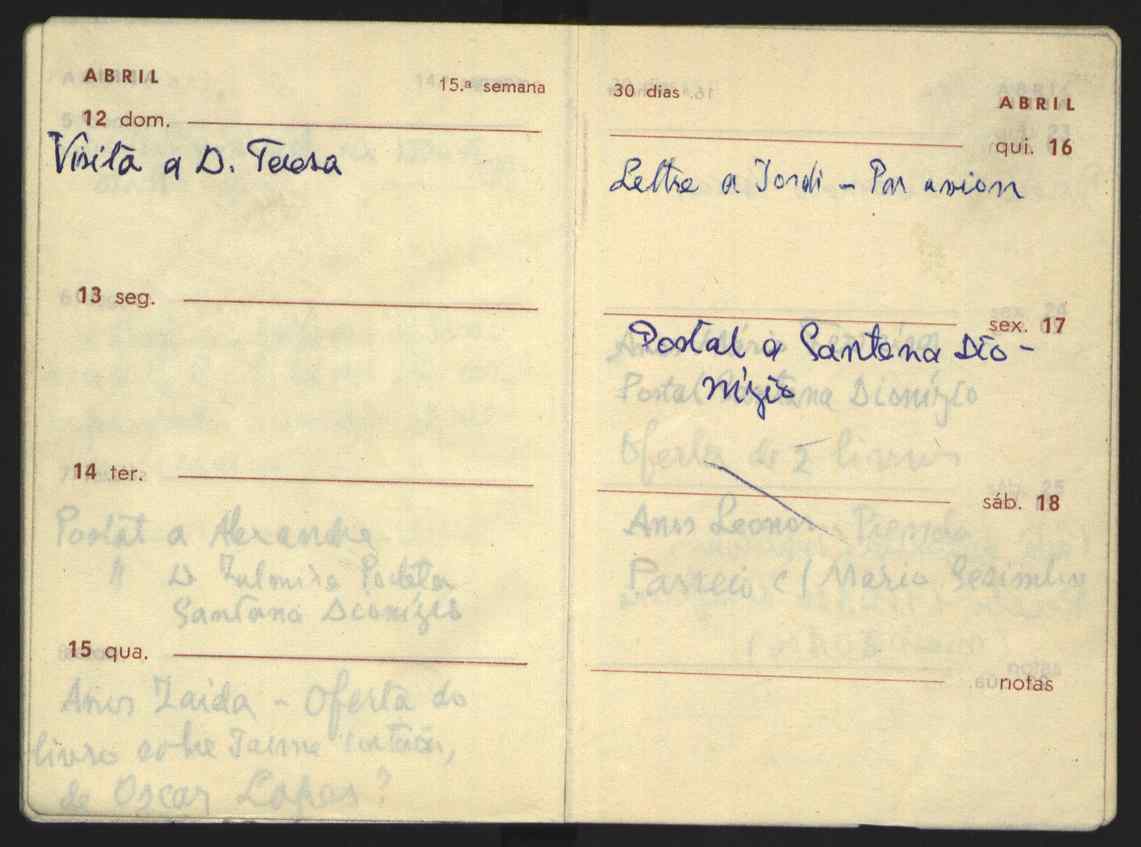 ABRIL
15.ª semana
12 dom.
Visita a D. Teresa
13 seg.
14 ter.
Postal a Alexandre
" D Zulmira
Santana Dionízio
15 qua.
Anos Zaida – Oferta do
livro sobre Jaime Cortesão,
de Oscar Lopes?
30 dias
ABRIL
qui. 16
Lettre a Jordi – Par avion
sex. 17
Postal a Santana Dio-
nízio
Anos Mário
Postal Santana Dionízio
Oferta de 2 livros
sáb. 18
Anos Leonor
Passeio c/ Mário Sesimbra
notas